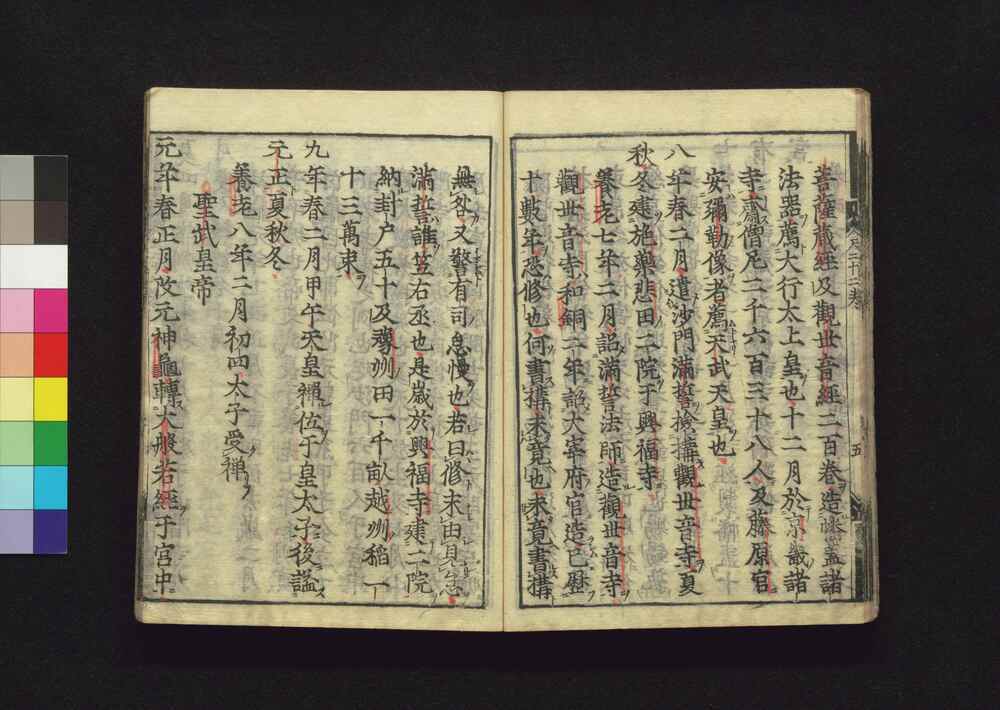 菩薩藏經及觀世音經二百卷造幡蓋諸
法器薦大行太上皇也十二月於京畿諸
寺齋僧尼二千六百三十八人及藤原宮
安彌勒像者薦天武天皇也
八年春二月遣沙門滿誓撿搆觀世音寺夏
秋冬建施藥悲田二院于興福寺
養老七年二月詔滿誓法師造觀世音寺
觀世音寺和銅二年詔大宰府官造已歷
十數年恐修也何書搆未竟也未竟書搆
無処又警有司怠慢也若曰修末由見怠
滿誓誰笠右丞也是歲於興福寺建二院
納封戶五十及豫州田一千畝越州稻一
十三萬束
九年春二月甲午天皇禪位于皇太子後謚
元正夏秋冬
養老八年二月初四太子受禪
聖武皇帝
元年春正月改元神龜轉大般若經于宮中
五